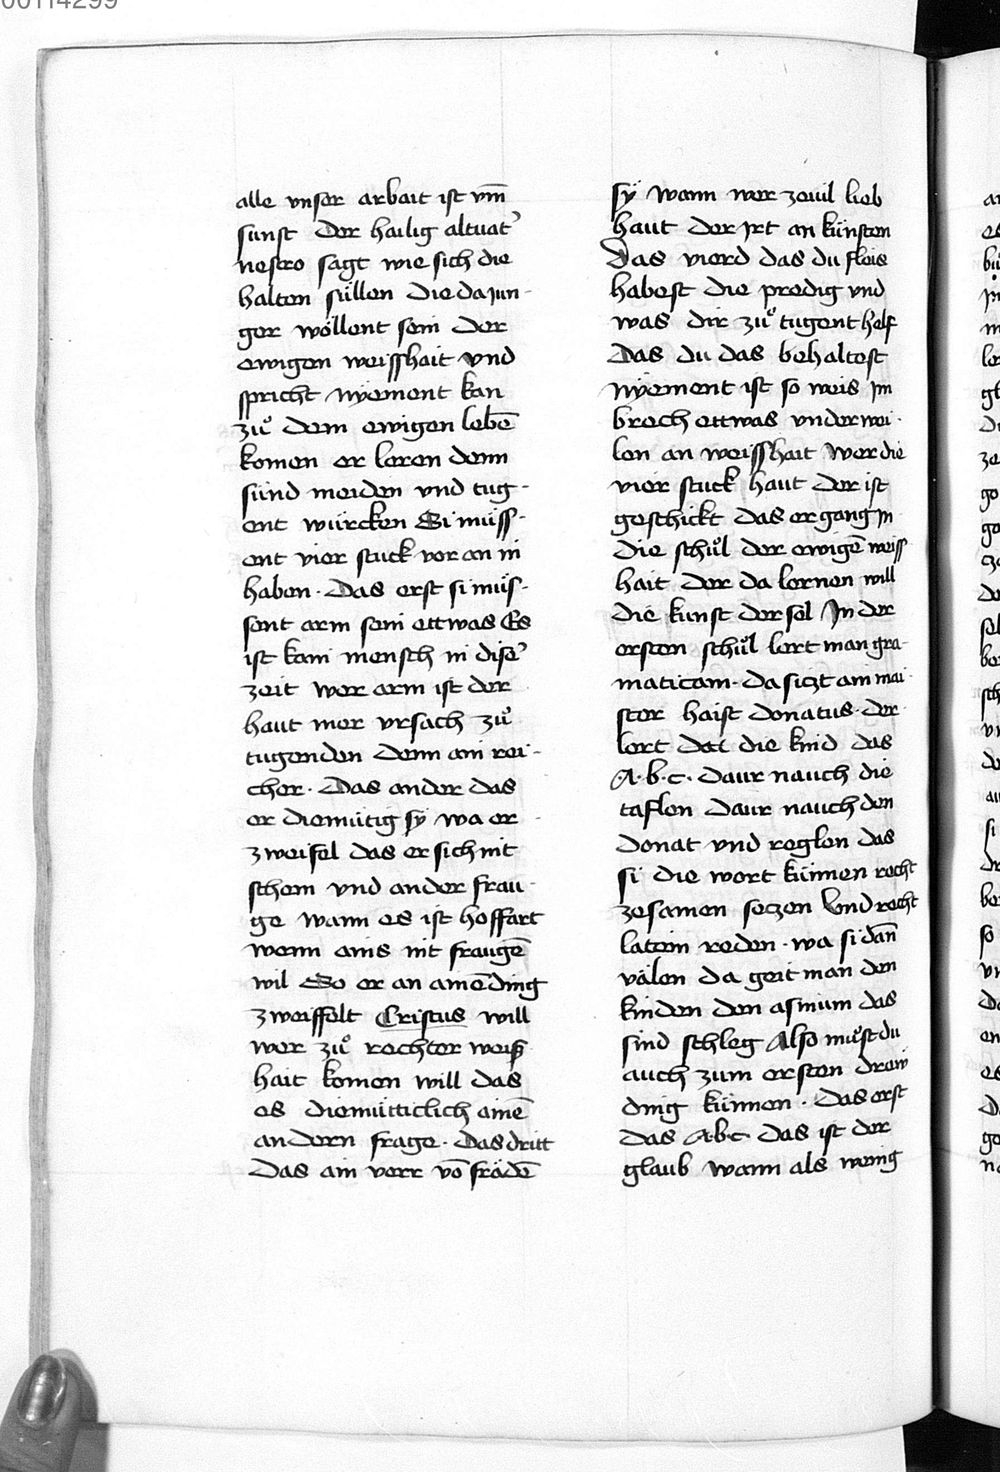 00114299
alle vnser arbait ist vm̄
sunst Der hailig altuat'
nestro sagt wie sich die
halten süllen die da jun-
ger wöllent sein Der
ewigen weisshait vnd
spricht nyement kan
zuͦ dem ewigen lebē
komen er leren denn
sünd meiden vnd tug-
ent würcken Si müss-
ent vier stuck vor an in
haben · Das erst si müs-
sent arm sein ettwas Es
ist kain mensch in diser'
zeit wer arm ist der
haut mer vrsach zuͦ
tugenden denn ain rei-
cher · Das ander das
er diemütig sÿ wa er
zweifel das er sich nit
schem vnd ander frau-
ge wann es ist hoffart
wenn ains nit fraugē
wil So er an amē ding
zweiffelt Cristus will
wer zuͦ rechter weiß
hait komen will das
es diemütticlich ainē
andern frage · Das dritt
Das ain verr vō frädē
sÿ wann wer zeuil lieb
haut der jrt an künsten
Das vierd das du fleis
habest die predig vnd
was dir zuͦ tugent helf
Das du das behaltest
nyement ist so weis jm
brech ettwas vnderwei-
len an weisshait Wer die
vier stuck haut der ist
geschickt das er gang jn
die schuͦl der ewigē weiss
hait der da lernen will
die kunst der sel Jn der
ersten schuͦl lert man gra-
maticam · da sitzt ain mai-
ster haist donatus · der
lert dei die kind das
A · b · c · daur nauch die
taflen daur nauch den
donat vnd reglen das
si die wort künnen recht
zesamen setzen Vnd recht
latein reden · wa si dān
välen da geit man den
kinden den asinum das
sind schleg Also muͦst du
auch zum ersten drew
ding künnen · Das erst
das A·b·c· das ist der
glaub wann als wenig